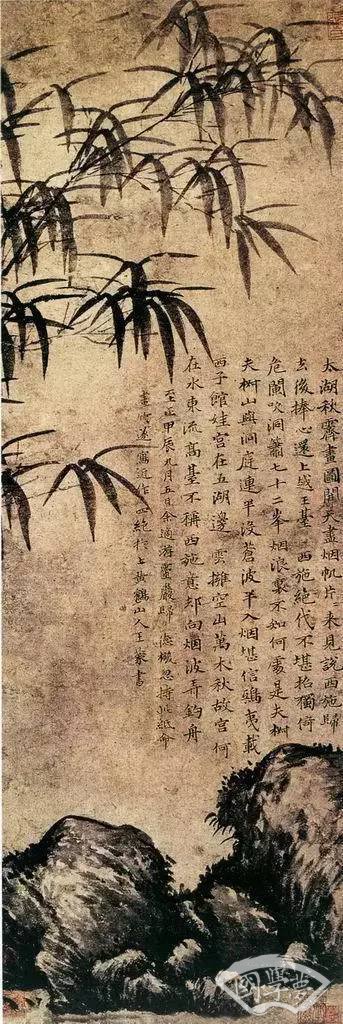 太湖秋霽畫圖開天盡烟帆片々来見說西施歸
去後捧心還上咸王臺 西施絶代不堪招獨倚
危闌吹洞簫七十二峯烟浪裏不知何處是夫椒
夫椒山與洞庭連半沒蒼波半入烟堪信鴟夷載
西子館娃宮在五湖邊 雲擁空山萬木秋故宮何
在水東流高臺不稱西施意却向烟波弄釣舟
至正甲辰九月五日余適游靈巖歸德機忽持此紙命
畫竹遂寫近作四絶於上黃鶴山人王蒙書
國學夢